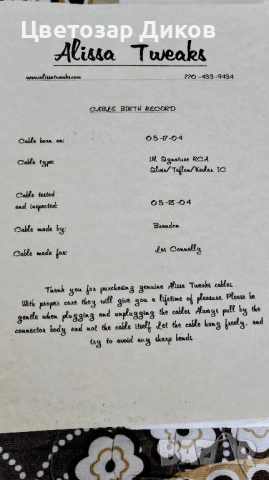 Цветозар Диков
Alissa Tweaks
www.alissatweaks.com 770-433-9434
CABLE BIRTH RECORD
Cable born on: 05-17-04
Cable type: 1M Signature RCA
Silver/Teflon/Kevlar IC
Cable tested
and inspected: 05-18-04
Cable made by: Brandon
Cable made for: Les Connolly
Thank you for purchasing genuine Alissa Tweaks cables.
With proper care they will give you a lifetime of pleasure. Please be
gentle when plugging and unplugging the cables. Always pull by the
connector body and not the cable itself. Let the cable hang freely, and
try to avoid any sharp bends.